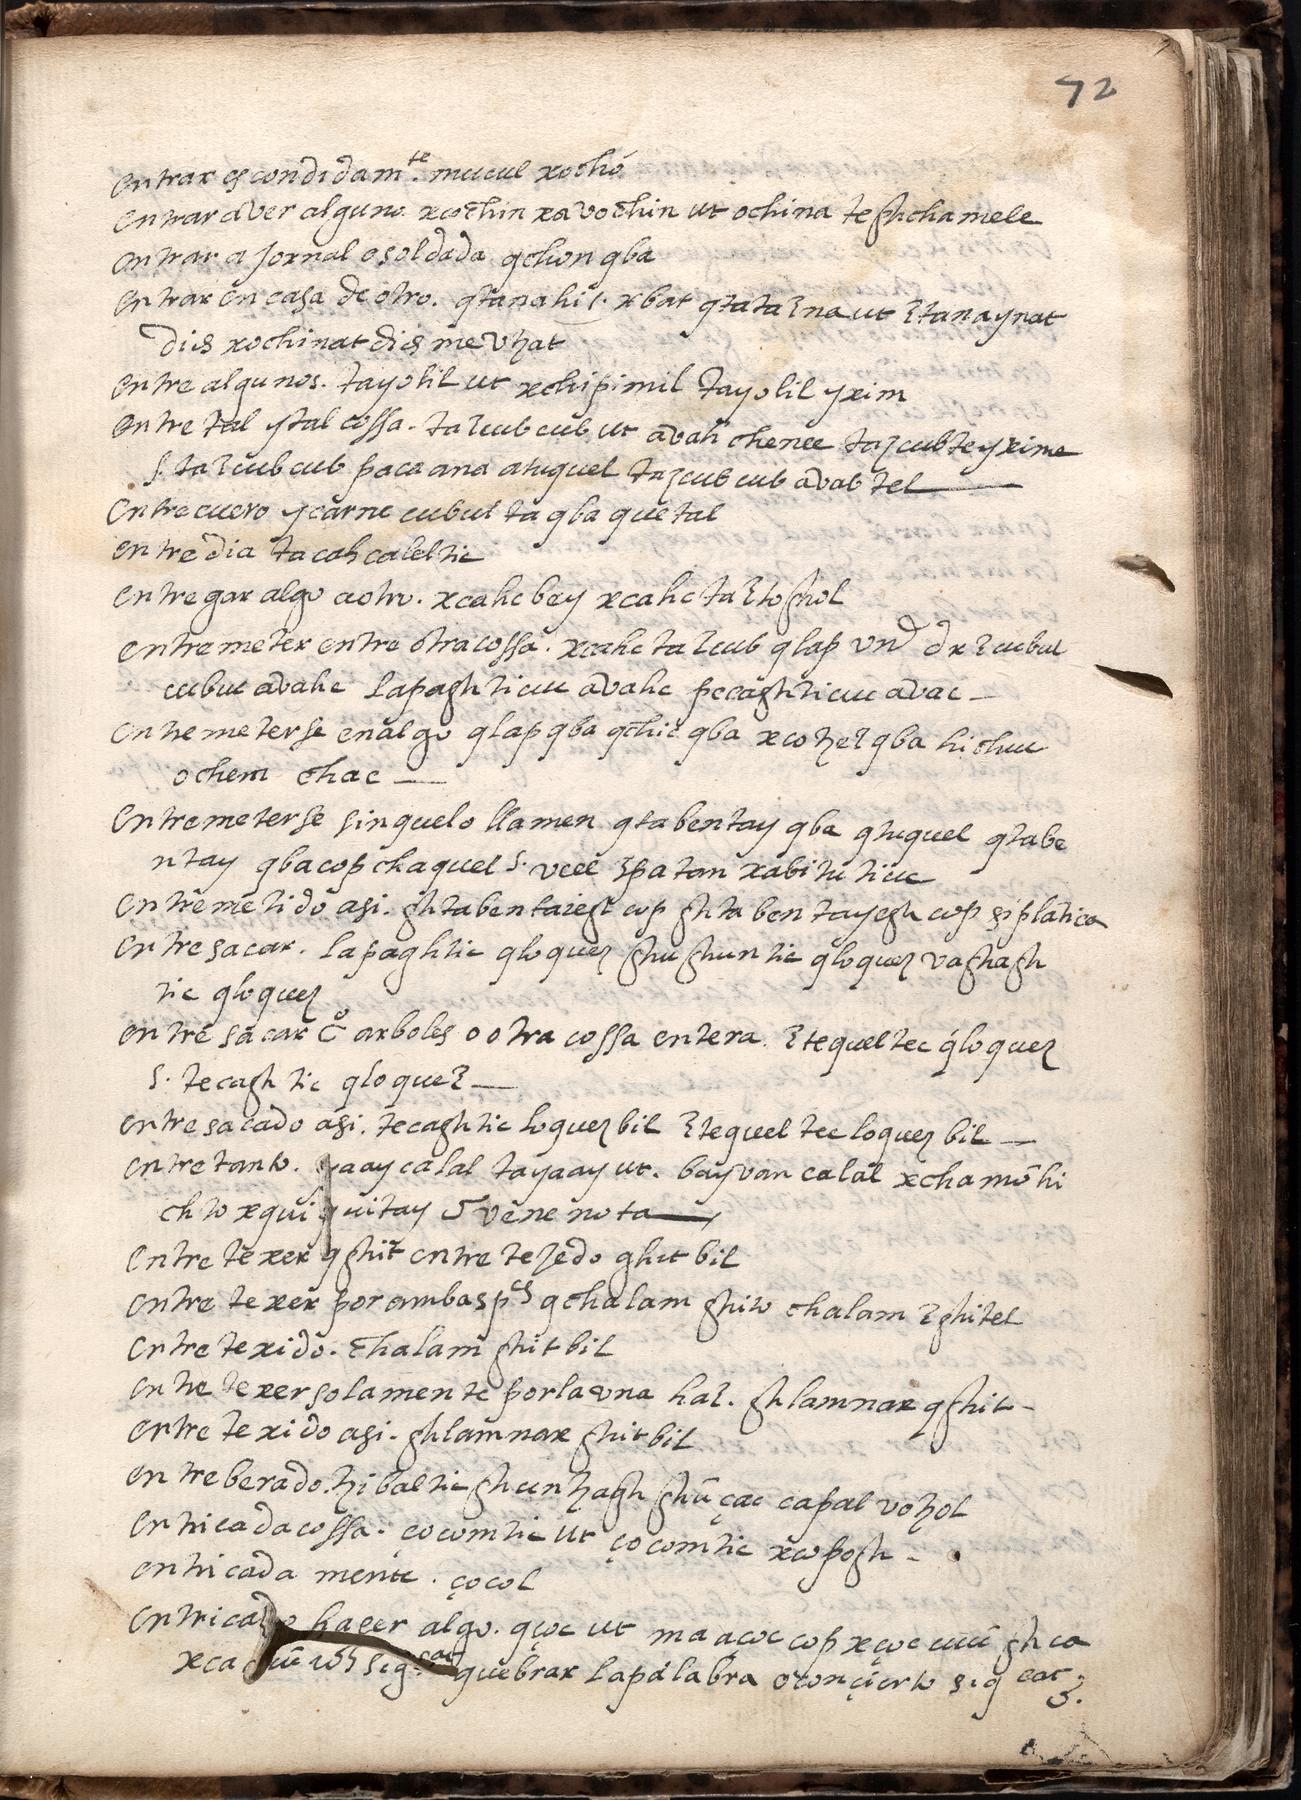 72
entrar escondidamte. mucul xochó
entrar a ver alguno. xcochin xavochin ut ochina teghchamele
entrar a jornal o soldada qchon qba
entrar en casa de otro. qtanahi s. xbat qtataꜣna ut ꜣtanaynat
dios xochinat dios me vhat
entre algunos. tayolil ut xchipimil tayolil yxim
entre tal y tal cossa. taꜣcub cub ut avah chenee taꜣcub te yxime
s. taꜣcub cub pace ana atuquel taꜣcub cub avab tel
entre cuero y carne cubul ta qba quetal
entre dia tacah caleltic
entregar algo a otro. xcahc bay xcahc taꜣtoghol
entremeter entre otra cossa. xcahc taꜣcub qlap vnd dr ꜣcubul
cubul avahc lapaghticuc avahc pecaghticuc avac
entremeterse en algo qlap qba qchic qba xcoheꜣ qba hichuc
ochem chac
entremeterse sin que lo llamen qtabentay qba qtuquel qtabe
ntay qba cop chaquel s. vcel ꜣpatan xabitu ticuc
entremetido asi. ghtabentaiegh cop ghtabentayegh cop si platica
entresacar. lapaghtic qloqueꜣ ghughuntic qloqueꜣ vaghagh
tic qloqueꜣ
entresacar co arboles o otra cossa entera. ꜣtequeltec qloqueꜣ
s. tecaghtic qloqueꜣ
entresacado asi. tecaghtic loqueꜣbil ꜣtequeltec loqueꜣbil
entretanto. yaay calal tayaay ut. bayvan calal xchamōhi
chto xqui quitay s vene nota
entretexer qghit entretejedo ghitbil
entretexer por ambas pes qchalam ghito chalam ꜣghitel
entretexido. chalam ghitbil
entretexer solamente por la una haꜣ. ghlamnax qghit
entretexido asi. ghlamnax ghitbil
entreberado. hibaltic ghunhagh ghū çac capal vohol
entricada cossa. çocomtic ut çocomtic xcopogh
entricada mente. çocol
entricado haçer algo. qçoc ut ma açoc cop xçoc ghca
quebrar la palabra o conçierto sig cat